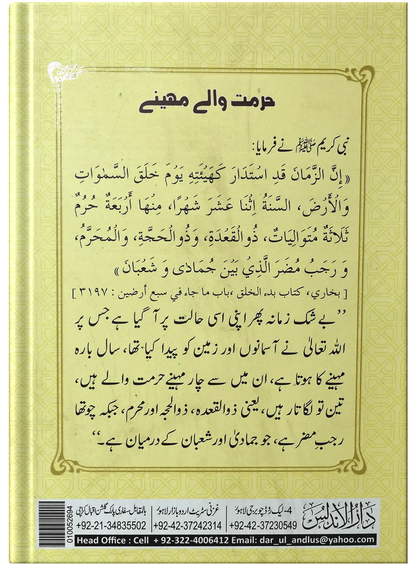 حرمت والے مہینے
نبی کریم ﷺ نے فرمایا:
«إِنَّ الزَّمَانَ قَدِ اسْتَدَارَ كَهَيْئَتِهِ يَوْمَ خَلَقَ السَّمٰوَاتِ
وَالْأَرْضَ، السَّنَةُ اِثْنَا عَشَرَ شَهْرًا، مِنْهَا أَرْبَعَةٌ حُرُمٌ
ثَلَاثَةٌ مُتَوَالِيَاتٌ، ذُوالْقَعْدَةِ، وَذُوالْحَجَّةِ، وَالْمُحَرَّمُ،
وَ رَجَبُ مُضَرَ الَّذِيْ بَيْنَ جُمَادٰى وَ شَعْبَانَ»
[بخاري، كتاب بدء الخلق، باب ما جاء في سبع أرضين : ٣١٩٧]
’’بے شک زمانہ پھر اپنی اسی حالت پر آ گیا ہے جس پر
اللہ تعالیٰ نے آسمانوں اور زمین کو پیدا کیا تھا، سال بارہ
مہینے کا ہوتا ہے، ان میں سے چار مہینے حرمت والے ہیں،
تین تو لگاتار ہیں، یعنی ذوالقعدہ، ذوالحجہ اور محرم، جبکہ چوتھا
رجب مضر ہے، جو جمادیٰ اور شعبان کے درمیان ہے۔‘‘
دار الاندلس
4- لیک روڈ چوبرجی لاہور
+92-42-37230549
غزنی سٹریٹ اردو بازار لاہور
+92-42-37242314
بالمقابل سفاری پارک گلشن اقبال کراچی
+92-21-34835502
Head Office : Cell + 92-322-4006412 Email: dar_ul_andlus@yahoo.com
010052694